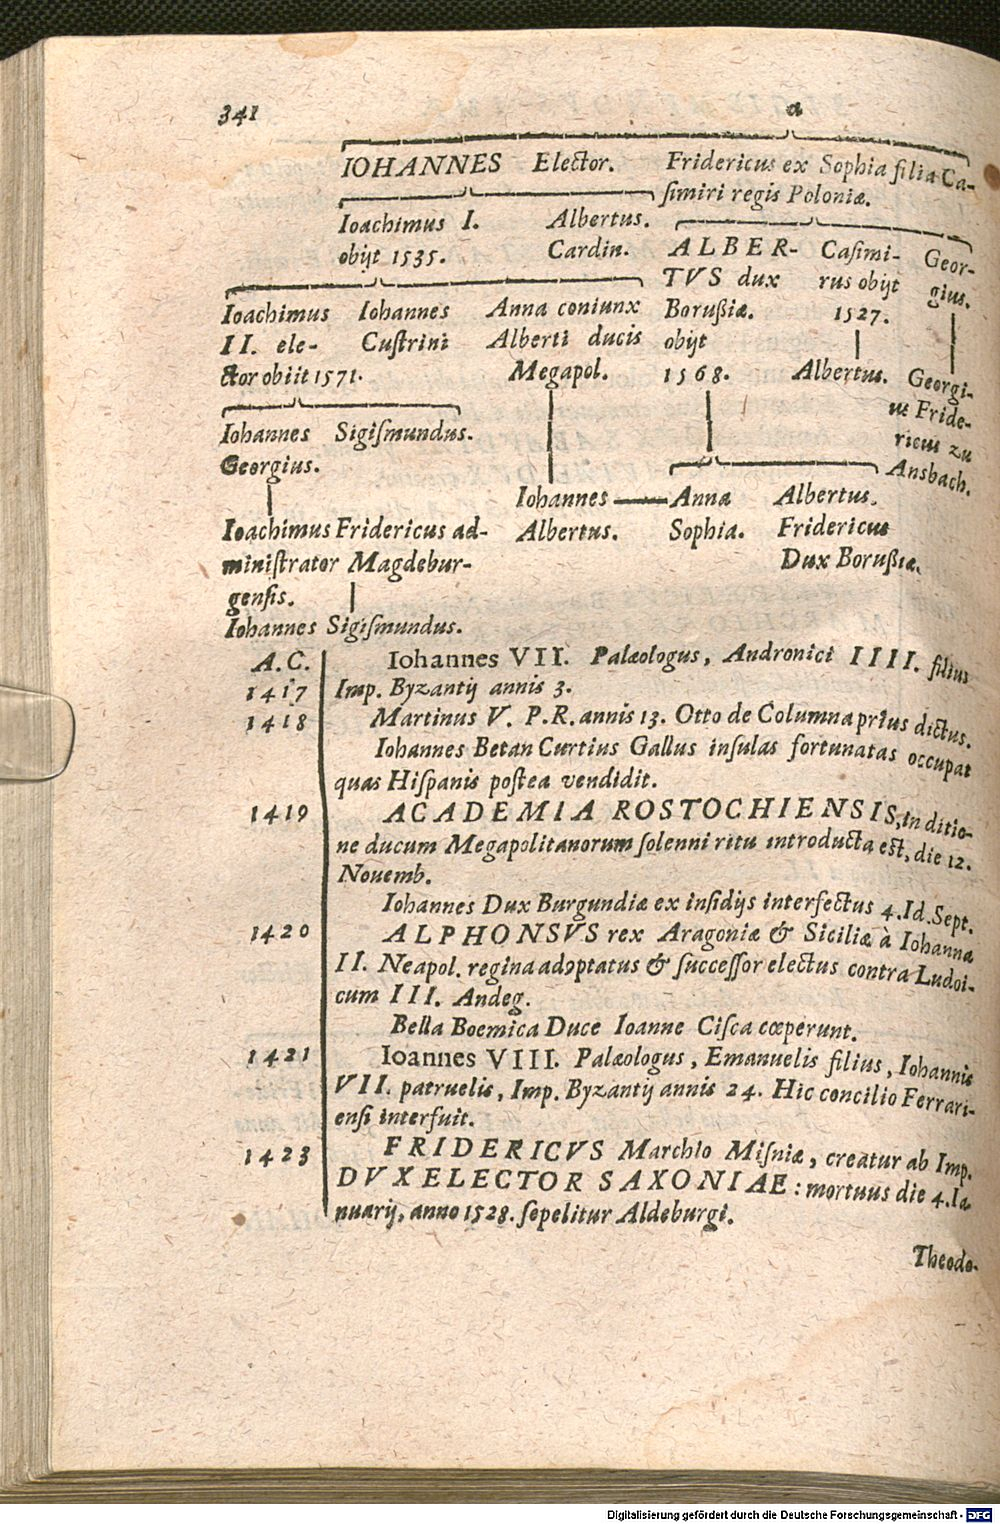 341 a
IOHANNES Elector. Fridericus ex Sophia filia Ca-
simiri regis Poloniæ.
Ioachimus I. Albertus.
obijt 1535. Cardin. ALBER- Casimi- Geor-
TVS dux rus obijt gius.
Ioachimus Iohannes Anna coniunx Borußiæ. 1527.
II. ele- Custrini Alberti ducis obijt
ctor obiit 1571. Megapol. 1568. Albertus. Georgi-
us Fride-
Iohannes Sigismundus. ricus zu
Georgius. Ansbach.
Iohannes Anna Albertus.
Ioachimus Fridericus ad- Albertus. Sophia. Fridericus
ministrator Magdebur- Dux Borußiæ.
gensis.
Iohannes Sigismundus.
A.C. Iohannes VII. Palæologus, Andronici IIII. filius
1417 Imp. Byzantij annis 3.
1418 Martinus V. P.R. annis 13. Otto de Columna prius dictus.
Iohannes Betan Curtius Gallus insulas fortunatas occupat
quas Hispanis postea vendidit.
1419 ACADEMIA ROSTOCHIENSIS, in ditio-
ne ducum Megapolitanorum solenni ritu introducta est, die 12.
Nouemb.
Iohannes Dux Burgundiæ ex insidijs interfectus 4. Id. Sept.
1420 ALPHONSVS rex Aragoniæ & Siciliæ à Iohanna
II. Neapol. regina adoptatus & successor electus contra Ludoi-
cum III. Andeg.
Bella Boemica Duce Ioanne Cisca cœperunt.
1421 Ioannes VIII. Palæologus, Emanuelis filius, Iohannis
VII. patruelis, Imp. Byzantij annis 24. Hic concilio Ferrari-
ensi interfuit.
1423 FRIDERICVS Marchio Misniæ, creatur ab Imp.
DVX ELECTOR SAXONIAE: mortuus die 4. Ia
nuarij, anno 1528. sepelitur Aldeburgi.
Theodo-
Digitalisierung gefördert durch die Deutsche Forschungsgemeinschaft - DFG